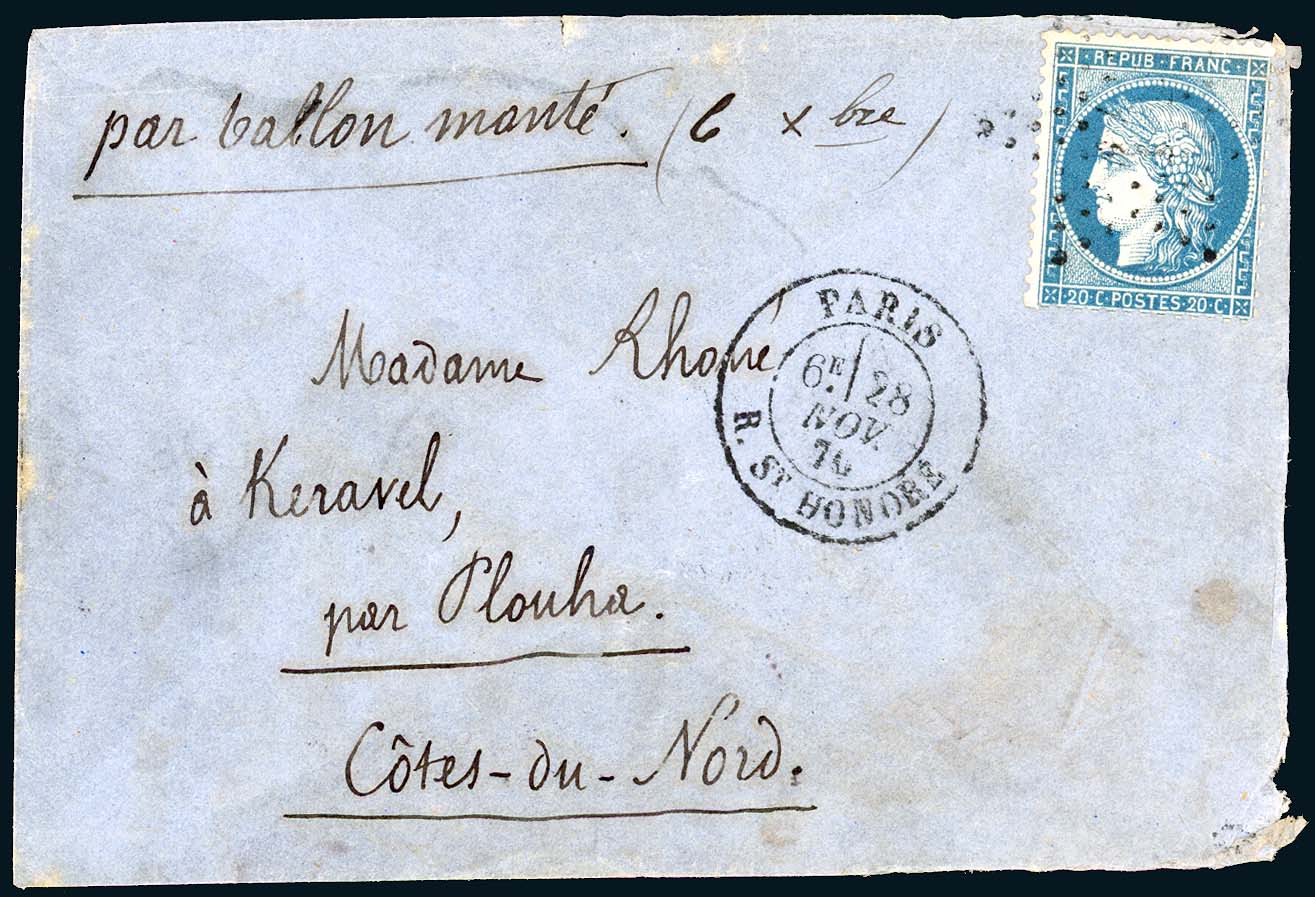 par ballon monté. (6 xbre)
REPUB · FRANC ·
20 · C · POSTES · 20 · C ·
Madame Rhoné
PARIS
6E 28
NOV.
70
R. ST HONORÉ
à Keravel,
par Plouha.
Côtes-du-Nord.